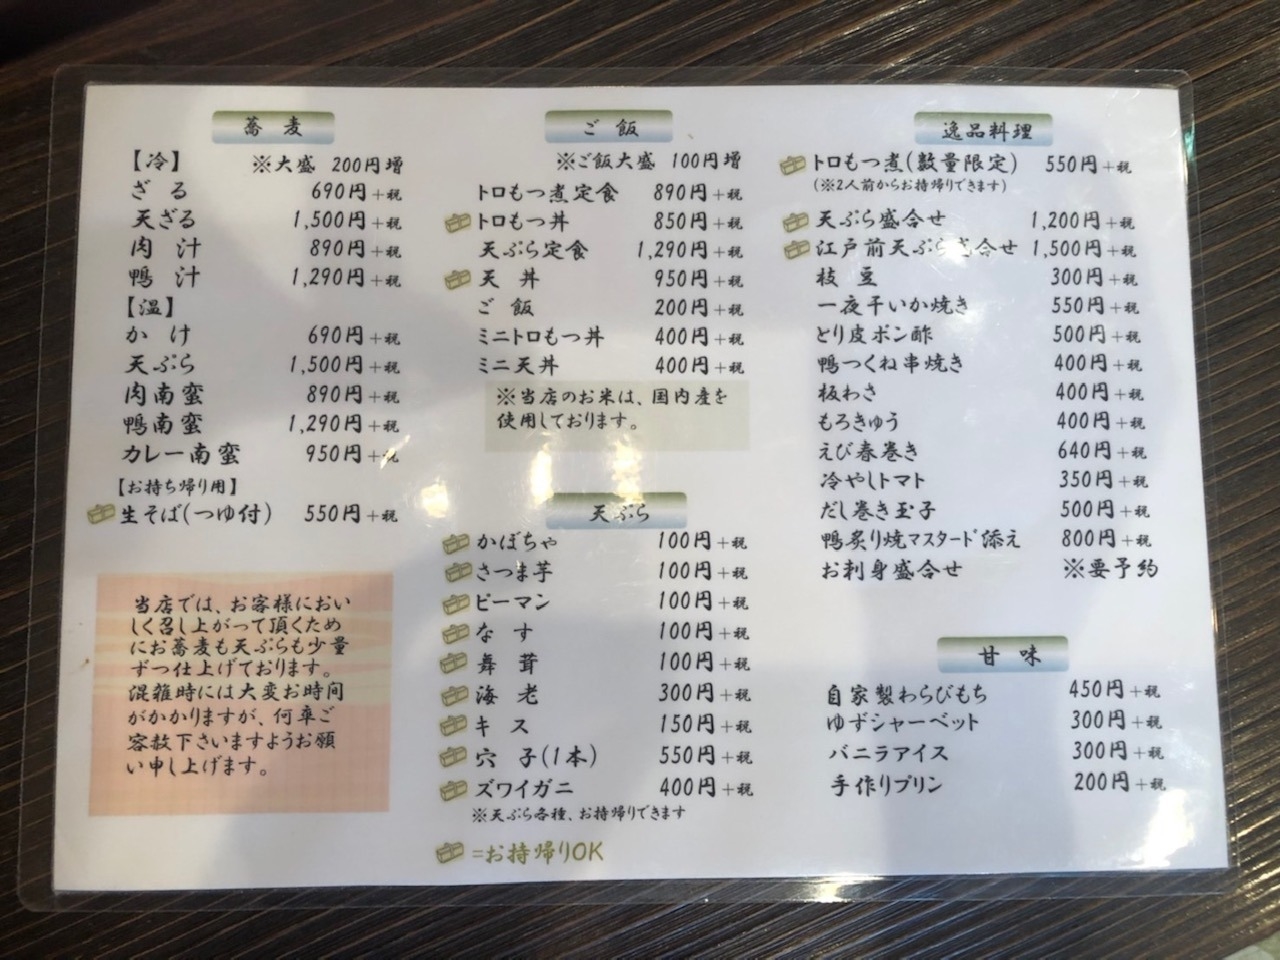 蕎麦
【冷】 ※大盛 200円増
ざる 690円+税
天ざる 1,500円+税
肉汁 890円+税
鴨汁 1,290円+税
【温】
かけ 690円+税
天ぷら 1,500円+税
肉南蛮 890円+税
鴨南蛮 1,290円+税
カレー南蛮 950円+税
【お持ち帰り用】
生そば(つゆ付) 550円+税
当店では、お客様においしく召し上がって頂くため
にお蕎麦も天ぷらも少量
ずつ仕上げております。
混雑時には大変お時間
がかかりますが、何卒ご
容赦下さいますようお願
い申し上げます。
ご飯
※ご飯大盛 100円増
トロもつ煮定食 890円+税
トロもつ丼 850円+税
天ぷら定食 1,290円+税
天丼 950円+税
ご飯 200円+税
ミニトロもつ丼 400円+税
ミニ天丼 400円+税
※当店のお米は、国内産を
使用しております。
天ぷら
かぼちゃ 100円+税
さつま芋 100円+税
ピーマン 100円+税
なす 100円+税
舞茸 100円+税
海老 300円+税
キス 150円+税
穴子(1本) 550円+税
ズワイガニ 400円+税
※天ぷら各種、お持帰りできます
=お持帰りOK
逸品料理
トロもつ煮(数量限定) 550円+税
(※2人前からお持帰りできます)
天ぷら盛合せ 1,200円+税
江戸前天ぷら盛合せ 1,500円+税
枝豆 300円+税
一夜干いか焼き 550円+税
とり皮ポン酢 500円+税
鴨つくね串焼き 400円+税
板わさ 400円+税
もろきゅう 400円+税
えび春巻き 640円+税
冷やしトマト 350円+税
だし巻き玉子 500円+税
鴨炙り焼マスタード添え 800円+税
お刺身盛合せ ※要予約
甘味
自家製わらびもち 450円+税
ゆずシャーベット 300円+税
バニラアイス 300円+税
手作りプリン 200円+税